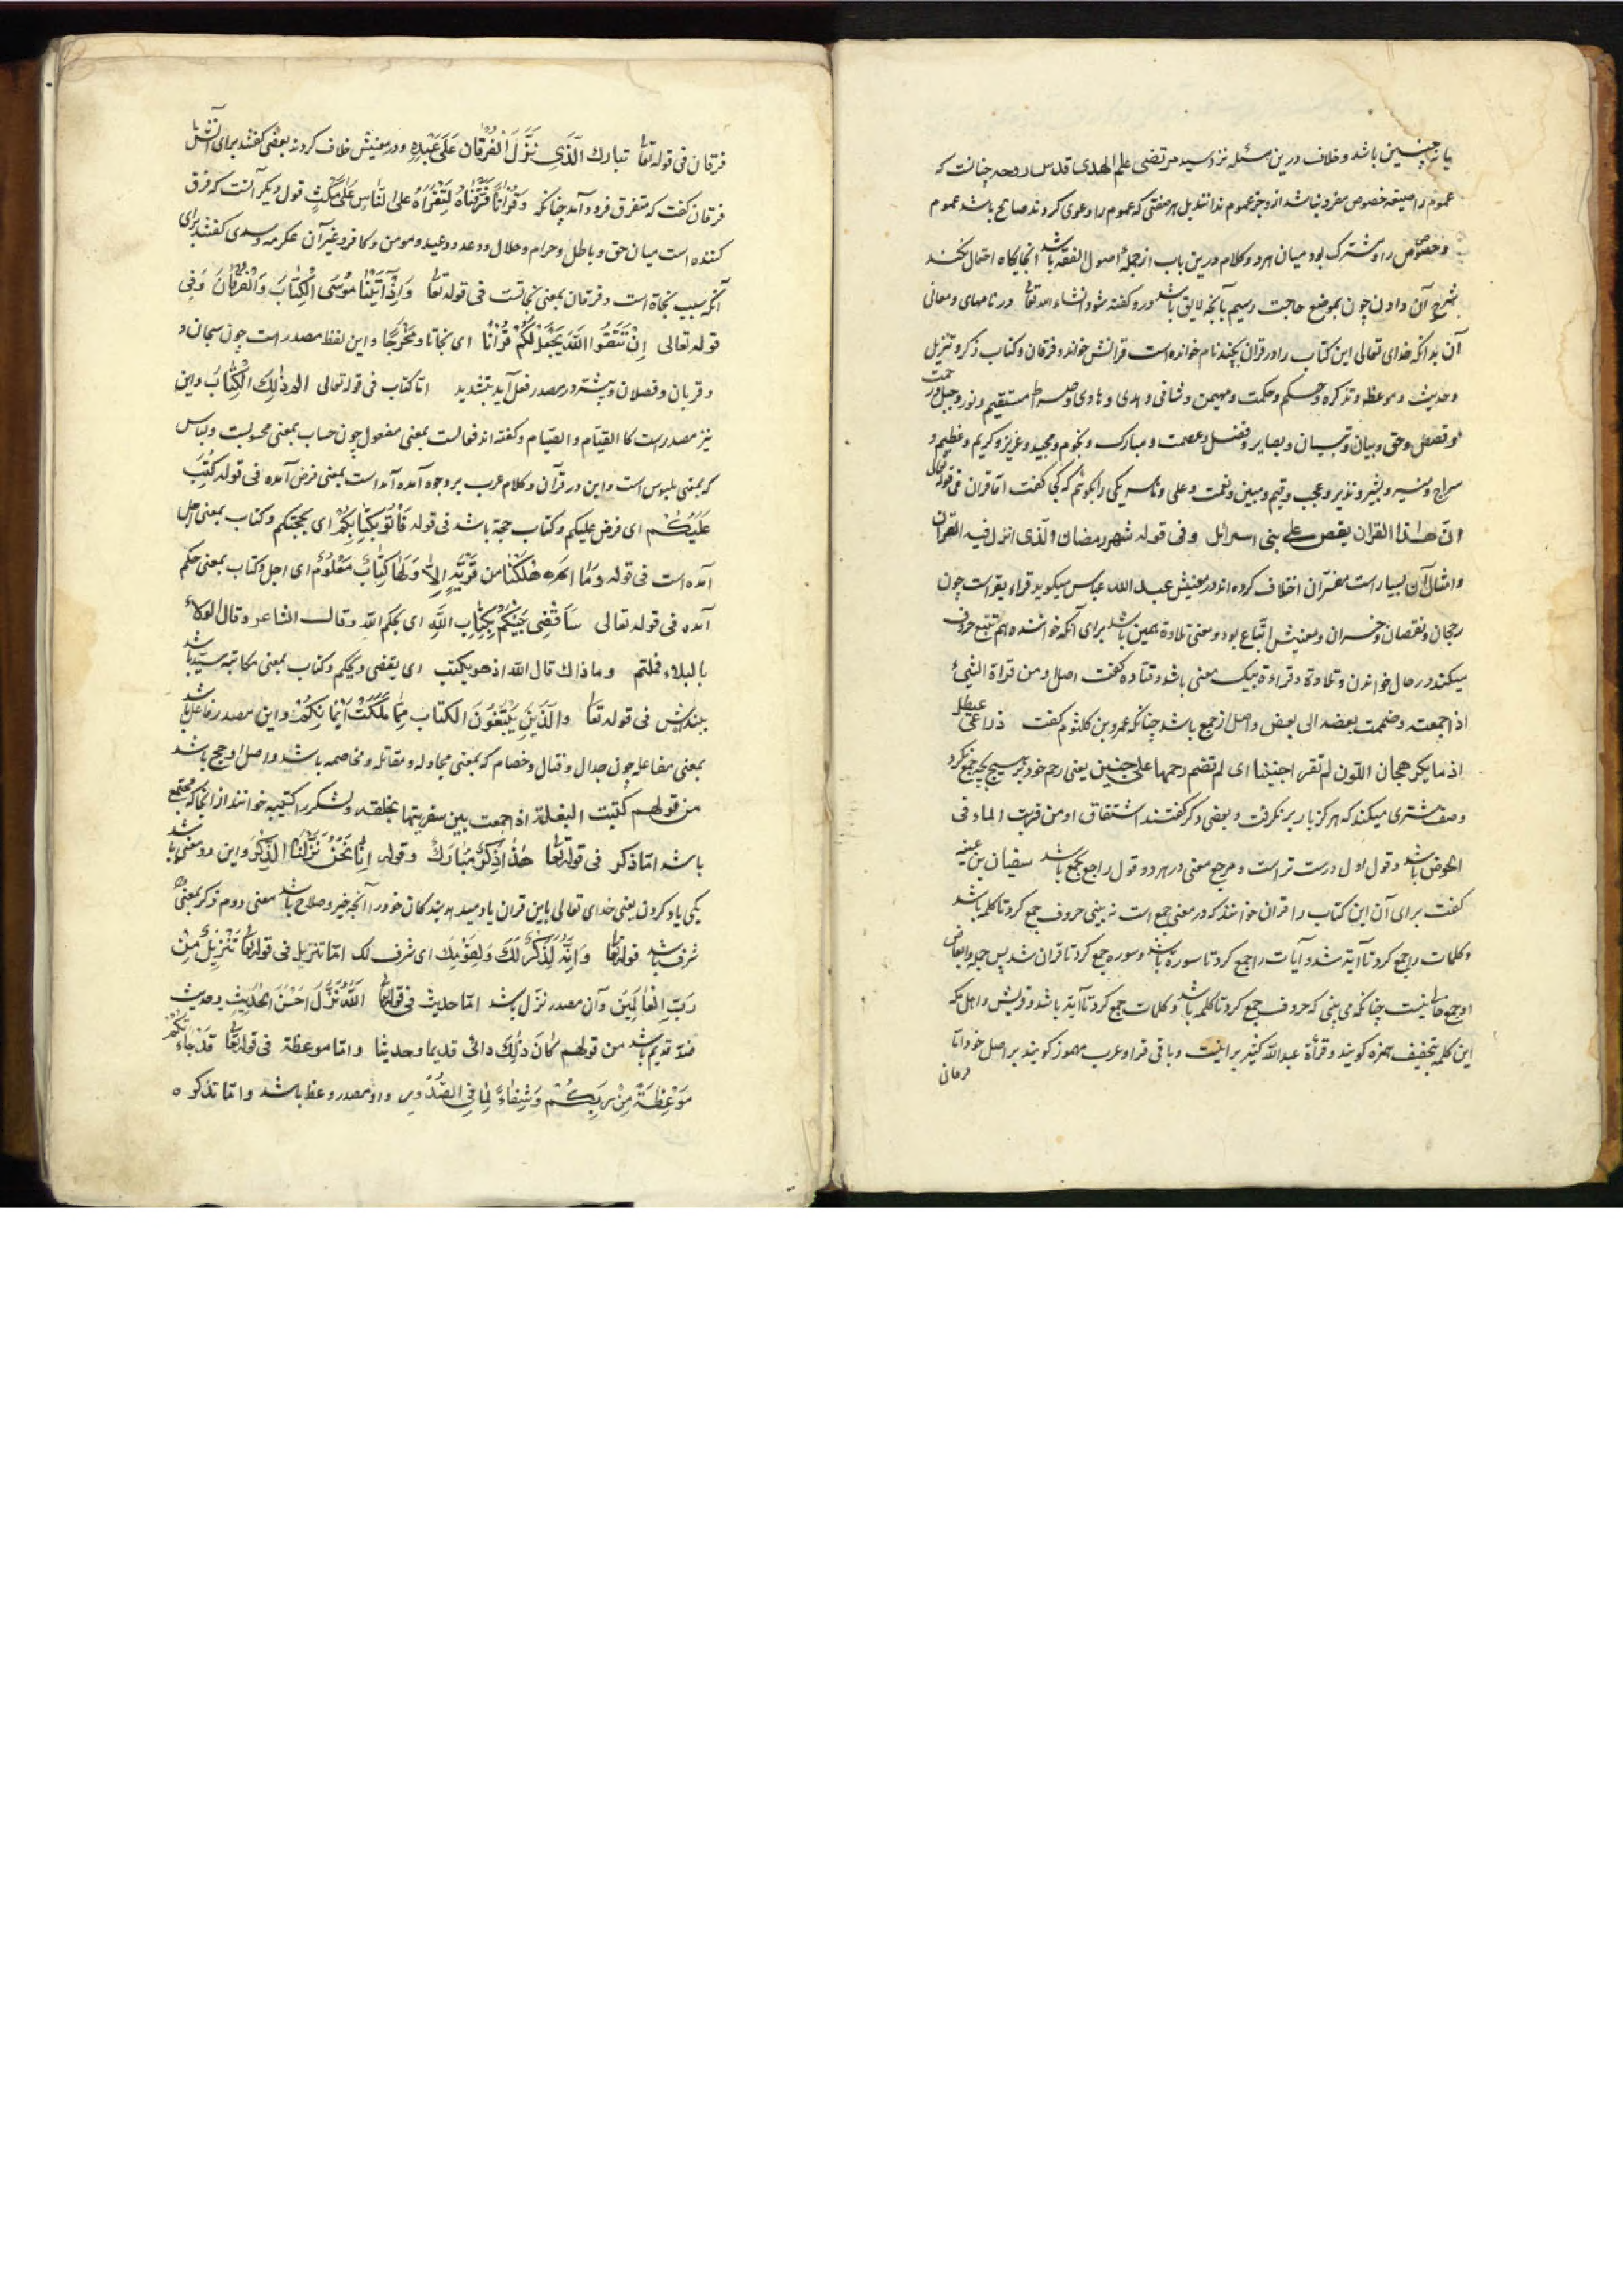 یا نه چنین باشد و خلاف درین مسئله نزد سید مرتضی علم الهدی قدس روحه چنانست که
عموم را صیغه خصوص مفرد نباشد از وجز عموم ندانند بل هر صفتی که عموم را دعوی کردند صالح باشد عموم
و خصوص را و مشترک بود میان هر دو و کلام درین باب از جمله اصول الفقه باشد اینجایگاه احتمال نکند
شرح آن دادن چون بموضع حاجت رسیم بآنچه لایق باشد درو گفته شود انشاء الله تعالی در نامهای و معانی
آن بدانکه خدای تعالی این کتاب را در قران بچند نام خوانده است قرانش خواند و فرقان و کتاب و ذکر و تنزیل
و حدیث و موعظه و تذکره و حکم و حکمت و مهیمن و شافی و هدی و هادی و صراط مستقیم و نور و حبل و رحمت
و قصص و حق و بیان و تبیان و بصایر و فصل و عصمت و مبارک و نجوم و مجید و عزیز و کریم و عظیم و
سراج و منیر و بشیر و نذیر و عجب و قیم و مبین و نعمت و علی و یکی را بگوئیم که کجا گفت اما قران فی قوله تعالی
ان هذا القران یقص علی بنی اسرائل وفی قوله شهر رمضان الذی انزل فیه القران
و امثال آن بسیار است مفسّران اختلاف کرده اند در معنیش عبد الله عباس میگوید قراء یقراست چون
رجحان و نقصان و خسران و معنیش اتّباع بود و معنی تلاوة همین باشد برای آنکه خواننده هم تتبع حروف
میکند در حال خواندن و تلاوة و قراءة بیک معنی باشد و قتاده گفت اصل او من قراة الشیٔ
اذا جمعته وضممت بعضه الی بعض و اصل از جمع باشد چنانکه عمرو بن کلثوم گفت ذراعی عیطل
اذ ما یکر هجان اللون لم تقر اجنینا ای لم تضم رحمها علی جنین یعنی رحم خود بر هیچ بچه جمع نکرد
وصف شتری میکند که هرگز بار بر نگرفت و بعضی دگر گفتند اشتقاق او من قریت الماء فی
الحوض باشد و قول اول درست تر است و مرجع معنی در هر دو قول راجع بجمع باشد سفیان بن عینیه
گفت برای آن این کتاب را قران خوانند که در معنی جمع است نه بینی حروف جمع کرد تا کلمه باشد
و کلمات را جمع کرد تا آیة شد و آیات را جمع کرد تا سوره باشد و سوره جمع کرد تا قران شد پس جمله و ابعاض
او جمع خالیست چنانکه می بینی که حروف جمع کرد تا کلمه باشد و کلمات جمع کرد تا آیة باشد و قریش و اهل مکه
این کلمه بتخفیف همزه گویند و قرأة عبد الله کثیر براینست و باقی قرا و عرب مهموز گویند بر اصل خود امّا
فرقان
فرقان فی قوله تعالی تبارك الّذی نَزَّلَ الْفُرْقَانَ عَلَی عَبْدِهِ و در معنیش خلاف کردند بعضی گفتند برای آنش
فرقان گفت که متفرق فرود آمد چنانکه وَقُرْاٰنًا فَرَقْنَاهُ لِتَقْرَاَهُ عَلَی النَّاسِ عَلَی مُكْثٍ قول دیگر آنست که فرق
کننده است میان حق و باطل و حرام و حلال و وعد و وعید و مومن و کافر و غیر آن عکرمه و سدی گفتند برای
آنکه سبب نجاة است و فرقان بمعنی نجاتست فی قوله تعالی وَاِذْ آتَیْنَا مُوْسَی الْكِتَابَ وَالْفُرْقَانَ وَفِی
قوله تعالی اِنْ تَتَّقُوا اللّٰهَ یَجْعَلْ لَكُمْ فُرْقَانًا ای نجاتا و مَخْرَجًا و این لفظ مصدر است چون سبحان و
و قربان و فصلان و بیشتر در مصدر فعل آید بتشدید امّا کتاب فی قوله تعالی الم ذٰلِكَ الْكِتَابُ و این
نیز مصدر است کالقیام والصّیام و گفته اند فعالست بمعنی مفعول چون حساب بمعنی محسوبست و لباس
که بمعنی ملبوس است و این در قرآن و کلام عرب بر وجوه آمده آمداست بمعنی فرض آمده فی قوله كُتِبَ
عَلَیْكُمْ ای فرض علیکم و کتاب حجة باشد فی قوله فَأْتُوْ بِكِتَابِكُمْ ای بحجتکم و کتاب بمعنی اجل
آمده است فی قوله وَمَا اَهْلَكْنَا مِن قَرْیَةٍ اِلاّٰ وَلَهَا كِتَابٌ مَعْلُوْمٌ ای اجل و کتاب بمعنی حکم
آمده فی قوله تعالی سَاَقْضِی بَیْنَكُمْ بِكِتَابِ اللّٰهِ ای بحکم الله وقال الشاعر وقال الولاء
بالبلاء فملتم وما ذاك قال الله اذ هو یکتب ای یقضی و یحکم و کتاب بمعنی مکاتبه سیّد باشد
ببندهاش فی قوله تعالی وَالَّذِیْنَ یَبْتَغُوْنَ الْكتَابَ مِمَّا مَلَكَتْ اَیْمَانُكُمْ و این مصدر فاعل باشد
بمعنی مفاعله چون جدال و قتال و خصام که بمعنی مجادله و مقاتله و مخاصمه باشد و اصل او جمع باشد
من قولهم كتبت البغلة اذا جمعت بین شفریتها بحلقه و لشکر را کتیبه خوانند از آنجا که مجتمع
باشد امّا ذکر فی قوله تعالی هٰذَا ذِكْرٌ مُبَارَكٌ و قوله اِنَّا نَحْنُ نَزَّلْنَا الذِّكْرَ و این دو معنی باشد
یکی یاد کردن یعنی خدای تعالی باین قران یاد میدهد بندکان خود را آنچه خیر و صلاح باشد معنی دوم ذکر بمعنی
شرف باشد قوله تعالی وَاِنَّهُ لَذِكْرٌ لَكَ وَلِقَوْمِكَ ای شرف لک امّا تنزیل فی قوله تعالی تَنْزِیْلٌ مِنْ
رَبِّ الْعَالَمِیْنَ و آن مصدر نزّل باشد امّا حدیث فی قوله تعالی اَللّٰهُ نَزَّلَ اَحْسَنَ الْحَدِیْثِ و حدیث
ضدّ قدیم باشد من قولهم كَانَ ذٰلِكَ دائی قدیما وحدیثا و امّا موعظة فی قوله تعالی قَدْ جَاءَتْكُمْ
مَوْعِظَةٌ مِنْ رَبِّكُمْ وَشِفَاءٌ لِمَا فِی الصُّدُوْرِ و او مصدر وعظ باشد و امّا تذکره